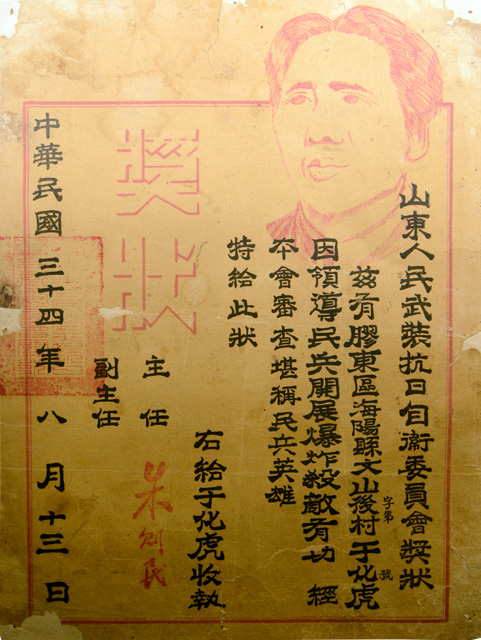 山東人民武裝抗日自衛委員會獎狀
字第 號
茲有膠東區海陽縣文山後村于化虎
因領導民兵開展爆炸殺敵有功 經
本會審查堪稱民兵英雄
特給此狀
右給于化虎收執
獎狀
主任 朱則民
副主任
中華民國三十四年八月十三日